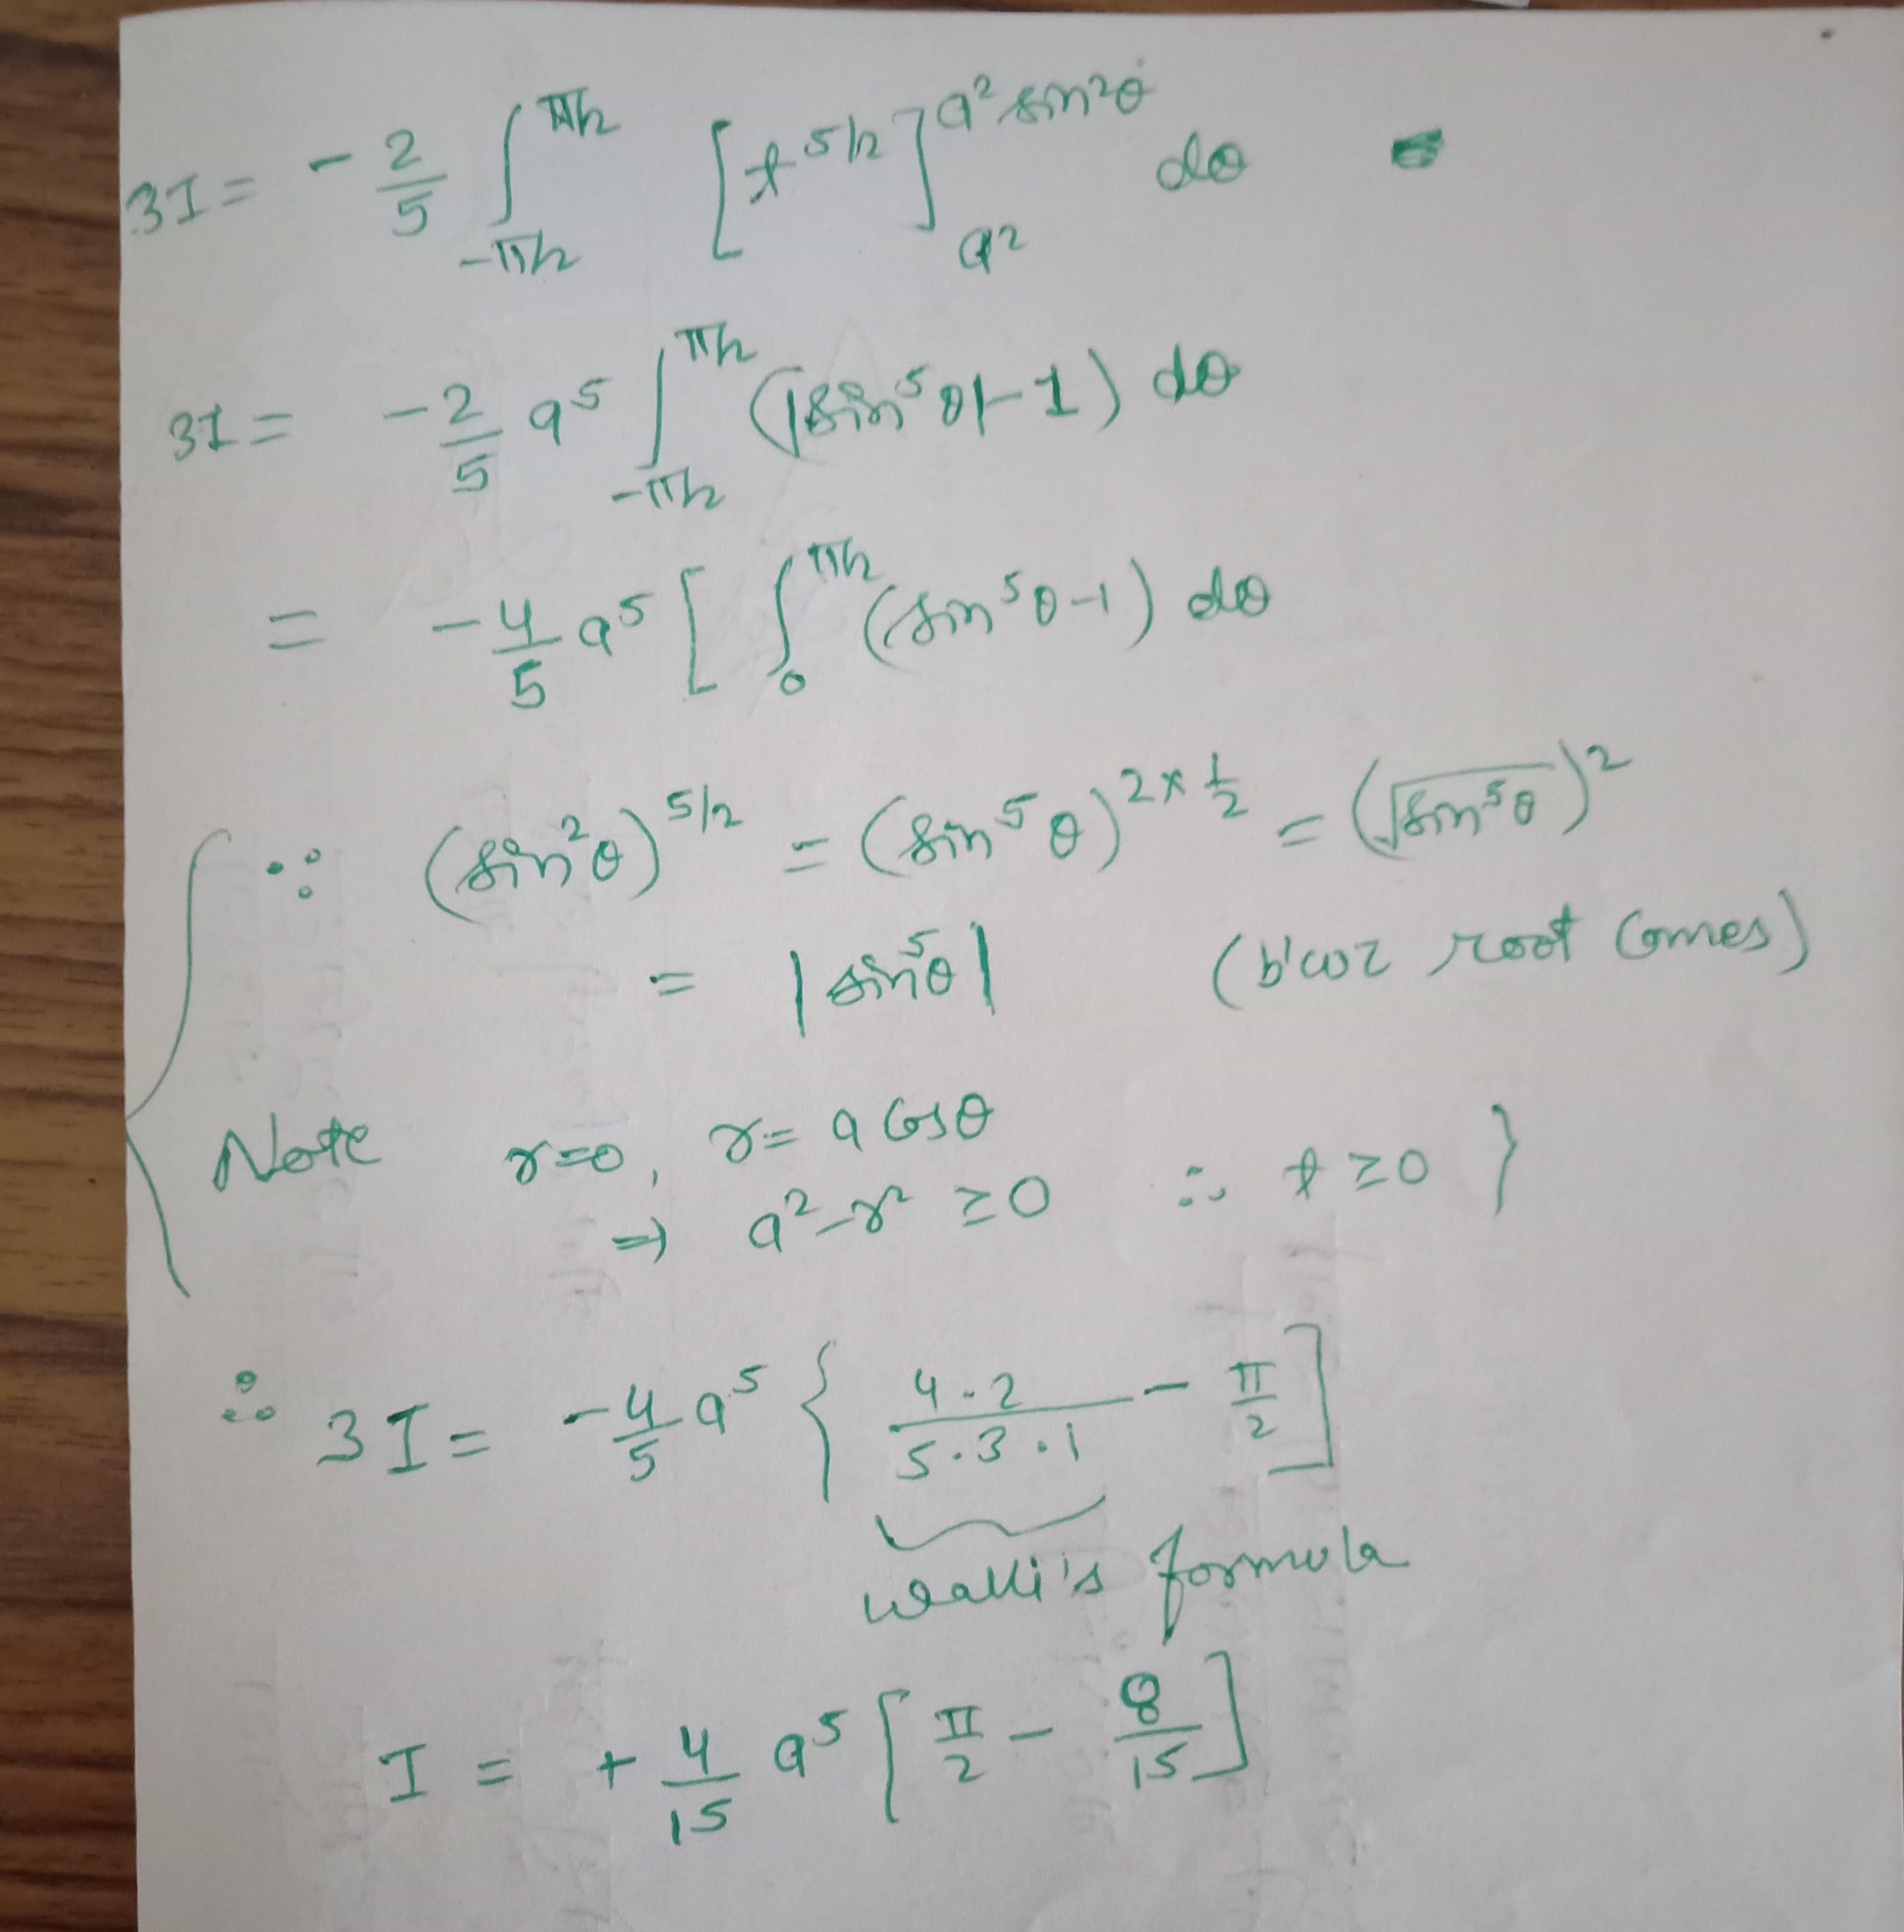 3I = - 2/5 ∫_{-π/2}^{π/2} [t^{5/2}]_{a²}^{a² sin²θ} dθ
3I = -2/5 a⁵ ∫_{-π/2}^{π/2} (|sin⁵θ|-1) dθ
= -4/5 a⁵ [ ∫_0^{π/2} (sin⁵θ-1) dθ
{ ∵ (sin²θ)^{5/2} = (sin⁵θ)^{2×1/2} = (√sin⁵θ)²
= |sin⁵θ| (b'coz root comes)
Note r=0, r= a cosθ
⇒ a²-r² ≥0 ∴ t ≥0 }
∴ 3I = -4/5 a⁵ { 4·2/5·3·1 - π/2 ]
Walli's formula
I = + 4/15 a⁵ [ π/2 - 8/15 ]